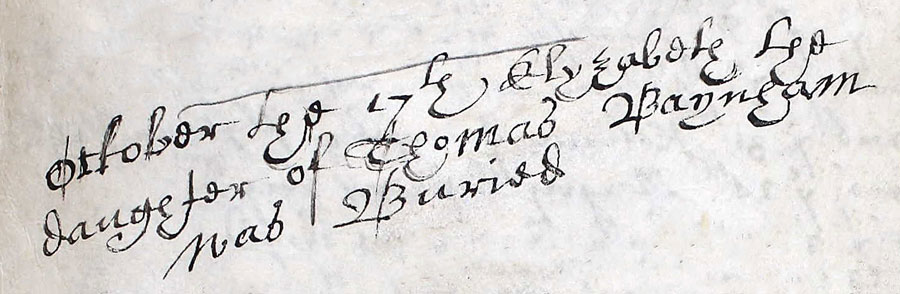 October the 17th Elyzabeth the
daughter of Thomas Baynham
was Buried